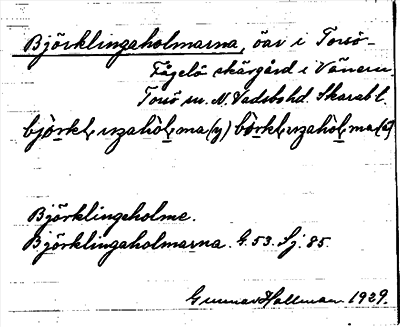 Björklingaholmarna, öar i Torsö-
Fågelö skärgård i Vänern.
Torsö sn. N. Vadsbo hd. Skarab. l.
björkl, ıŋahòl, ma (y) börkl, ıŋahòl, ma (a)
Björklingeholme.
Björklingaholmarna. G. 53. Sj. 85.
Gunnar Hallman 1929.